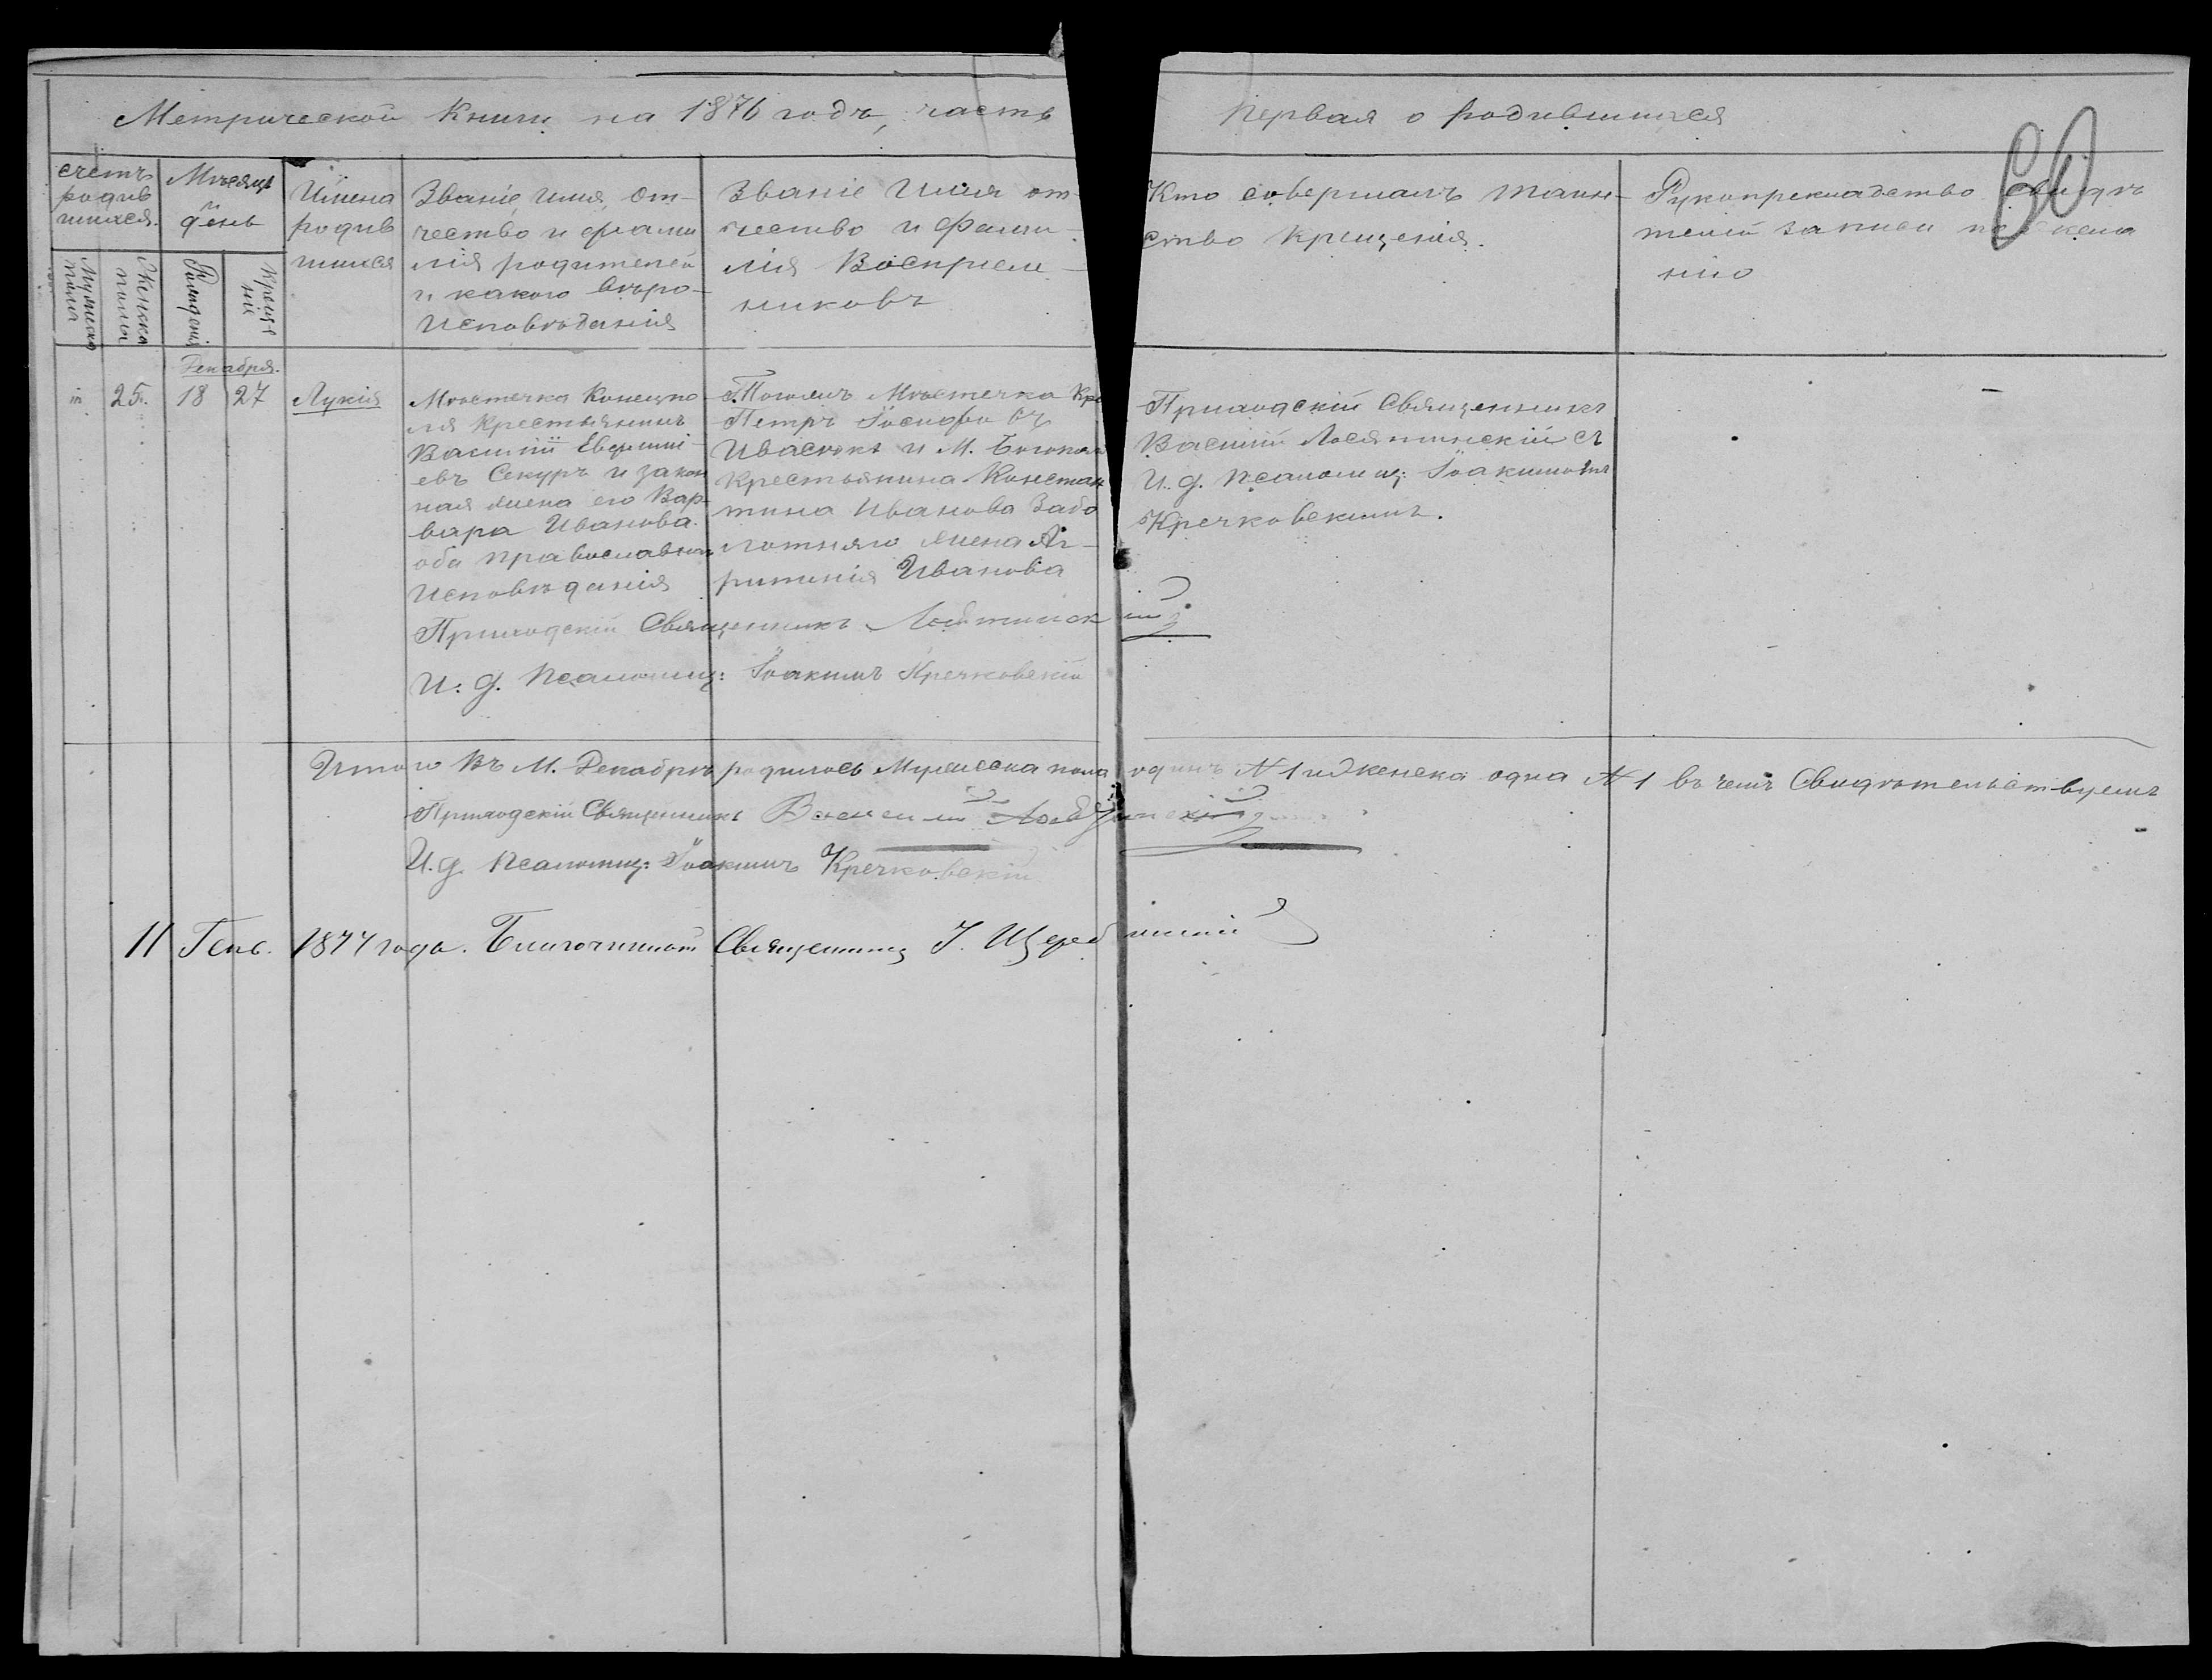 Метрической Книги на 1876 годъ, часть первая о родившихся
60
счетъ
родив
шихся.
Мѣсяцъ
и
день
Имена
родив
шихся
Званіе, имя, от-
чество и фами
лія родителей
и какого вѣро-
исповѣданія
Званіе имя от-
чество и фами-
лія Воспріем-
никовъ
Кто совершалъ таин-
ство крещенія.
Рукоприкладство свидѣ
телей записи по жела
нію
Мужеска
пола
Женска
пола
Рожденія
Креще
нія
Декабря.
25. 18 27 Лукія
Мѣстечка Конецпо
ля крестьянинъ
Василій Евфимі-
евъ Секуръ и закон
ная жена его Вар-
вара Иванова.
оба православнаго
исповѣданія
Тогожъ Мѣстечка Кре
Петръ Іосифовъ
Ивасюкъ и М. Богопол
крестьянина Констан
тина Иванова Забо
лотняго жена Аг-
рипинія Иванова
Приходскій Священникъ
Василій Лосятинскій съ
И. д. псаломщ: Іоакимомъ
Кречковскимъ.
Приходскій Священникъ Лосятинскій
И. д. псаломщ: Іоакимъ Кречковскій
Итого въ М. Декабрѣ родилось Мужеска пола одинъ N 1 и женска одна N 1 въ чемъ Свидѣтельствуемъ
Приходскій Священникъ Василій Лосятинскій
И. д. псаломщ: Іоакимъ Кречковскій
11 Генв. 1877 года. Благочинный Священникъ І. Щербинскій